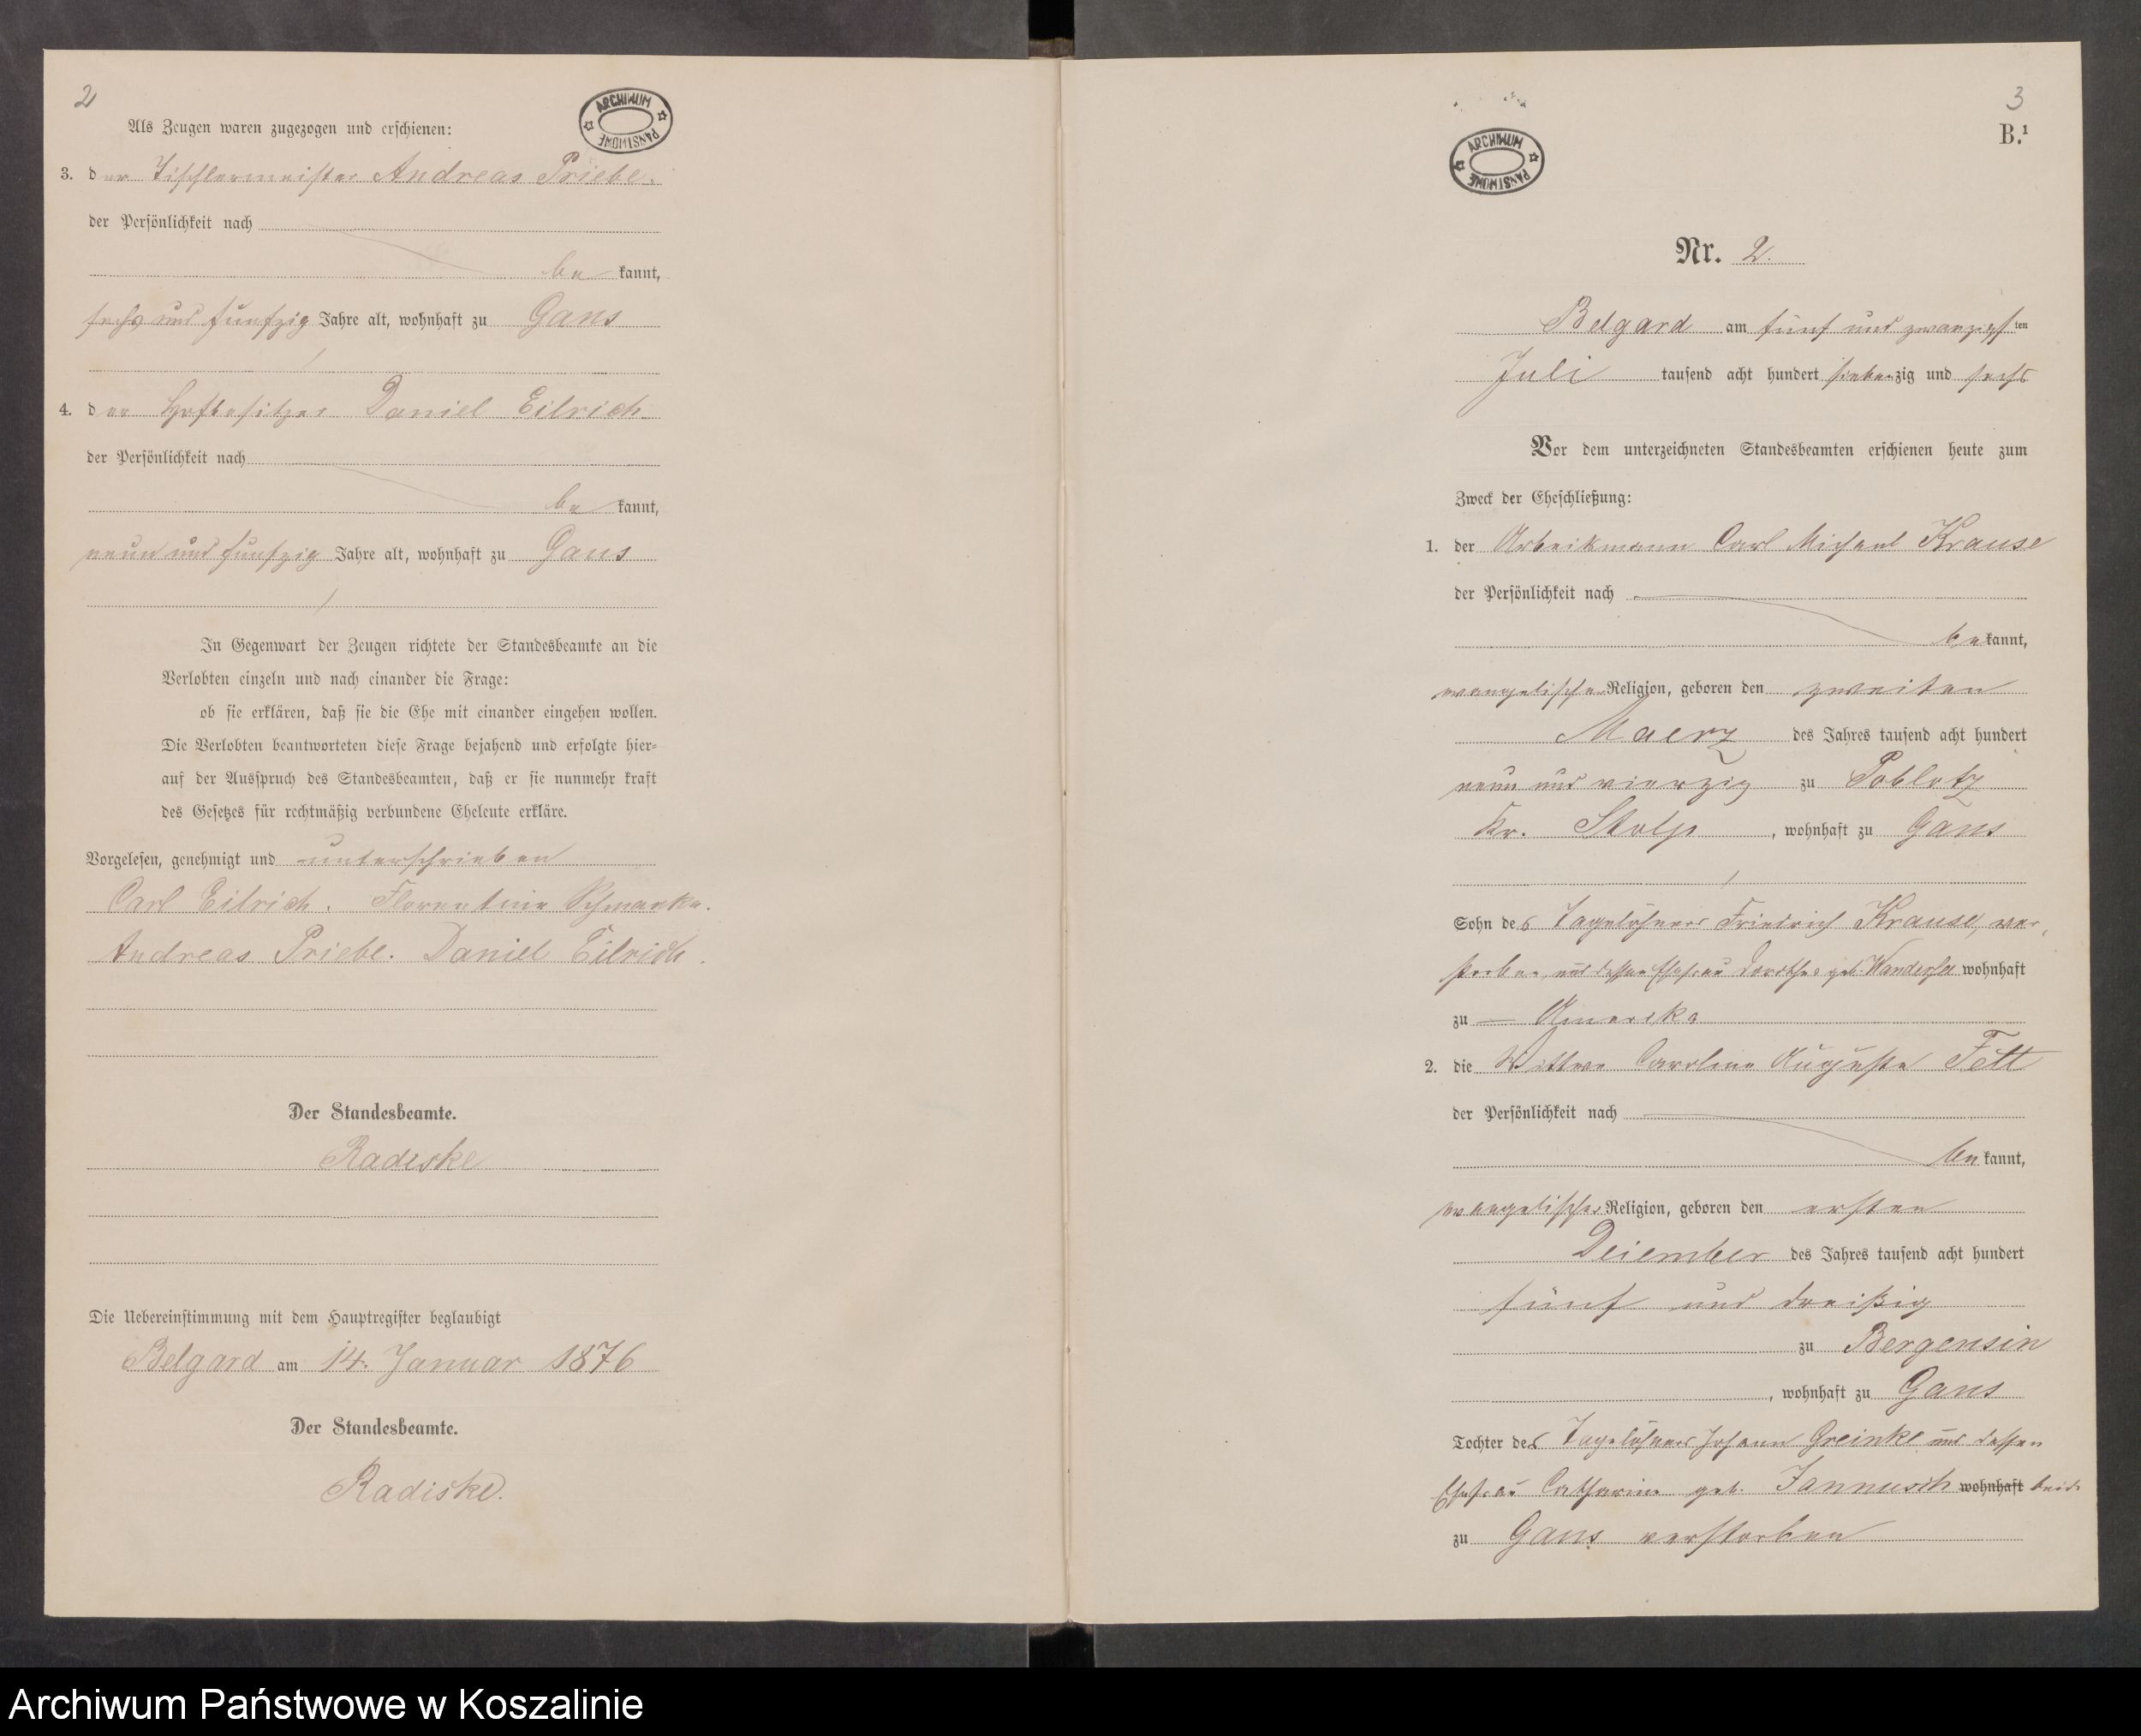 2
Als Zeugen waren zugezogen und erschienen:
ARCHIWUM PAŃSTWOWE
3. der Tischlermeister Andreas Priebe.
der Persönlichkeit nach
be kannt,
sechs und fünfzig Jahre alt, wohnhaft zu Gans
4. der Hofbesitzer Daniel Eilrich
der Persönlichkeit nach
be kannt,
neun und fünfzig Jahre alt, wohnhaft zu Gans
In Gegenwart der Zeugen richtete der Standesbeamte an die
Verlobten einzeln und nach einander die Frage:
ob sie erklären, daß sie die Ehe mit einander eingehen wollen.
Die Verlobten beantworteten diese Frage bejahend und erfolgte hier-
auf der Ausspruch des Standesbeamten, daß er sie nunmehr kraft
des Gesetzes für rechtmäßig verbundene Eheleute erkläre.
Vorgelesen, genehmigt und unterschrieben
Carl Eilrich. Florentine Schmanke.
Andreas Priebe. Daniel Eilrich.
Der Standesbeamte.
Radiske
Die Uebereinstimmung mit dem Hauptregister beglaubigt
Belgard am 14. Januar 1876
Der Standesbeamte.
Radiske.
3
B.¹
ARCHIWUM PAŃSTWOWE
Nr. 2.
Belgard am fünf und zwanzigsten
Juli tausend acht hundert siebenzig und sechs
Vor dem unterzeichneten Standesbeamten erschienen heute zum
Zweck der Eheschließung:
1. der Arbeitmann Carl Michael Krause
der Persönlichkeit nach
be kannt,
evangelischer Religion, geboren den zweiten
Maerz des Jahres tausend acht hundert
neun und vierzig zu Poblotz
Kr. Stolp, wohnhaft zu Gans
Sohn des Tagelöhners Friedrich Krause, ver-
storben und dessen Ehefrau Dorothea geb. wohnhaft
zu Amerika
2. die Wittwe Caroline Auguste Fett
der Persönlichkeit nach
be kannt,
evangelischer Religion, geboren den ersten
Deiember des Jahres tausend acht hundert
fünf und dreißig
zu Bergensin
, wohnhaft zu Gans
Tochter des Tagelöhners Johann Greinke und dessen
Ehefrau Catharine geb. Jannusch wohnhaft beide
zu Gans verstorben
Archiwum Państwowe w Koszalinie